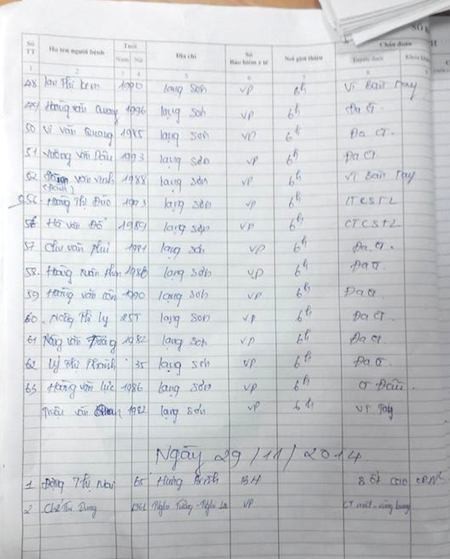 Số TT Họ tên người bệnh Tuổi Nam Nữ Địa chỉ Số Bảo hiểm y tế Nơi giới thiệu Chẩn đoán Tuyến dưới Khoa khám
1 2 3 4 5 6 7 8
48 Thị Kem 1990 lạng Sơn VP 6h VT Bàn Tay
49 Hoàng văn Cương 1996 lạng Sơn VP 6h Đa CT
50 Vi văn Quang 1985 lạng Sơn VP 6h Đa CT
51 văn 1993 lạng sơn VP 6h Đa CT
52 văn vinh 1988 lạng sơn VP 6h VT Bàn Tay
Hoàng Thị Đức 1973 lạng sơn VP 6h CTCSTL
56 Hồ văn Đố 1989 lạng sơn VP 6h CTCSTL
57 Chu văn phúi lạng sơn VP 6h Đa CT
58 Hoàng 1986 lạng sơn VP 6h Đa CT
59 Hoàng văn 1990 lạng sơn VP 6h Đa CT
60 Nông Thị Ly 25T lạng Sơn VP 6h Đa CT
61 văn 1982 lạng sơn VP 6h Đa CT
62 Lý Thị Thành 35 lạng sơn VP 6h Đa CT
63 Hoàng văn lực 1986 lạng sơn VP 6h CT Đầu
Triệu văn 1982 lạng sơn VP 6h VT Tay
Ngày 29/11/2014
1 Đặng Thị Mai 65 Hưng Bình BH Sốt cao
2 Chế Thị Dung 1961 VP CT